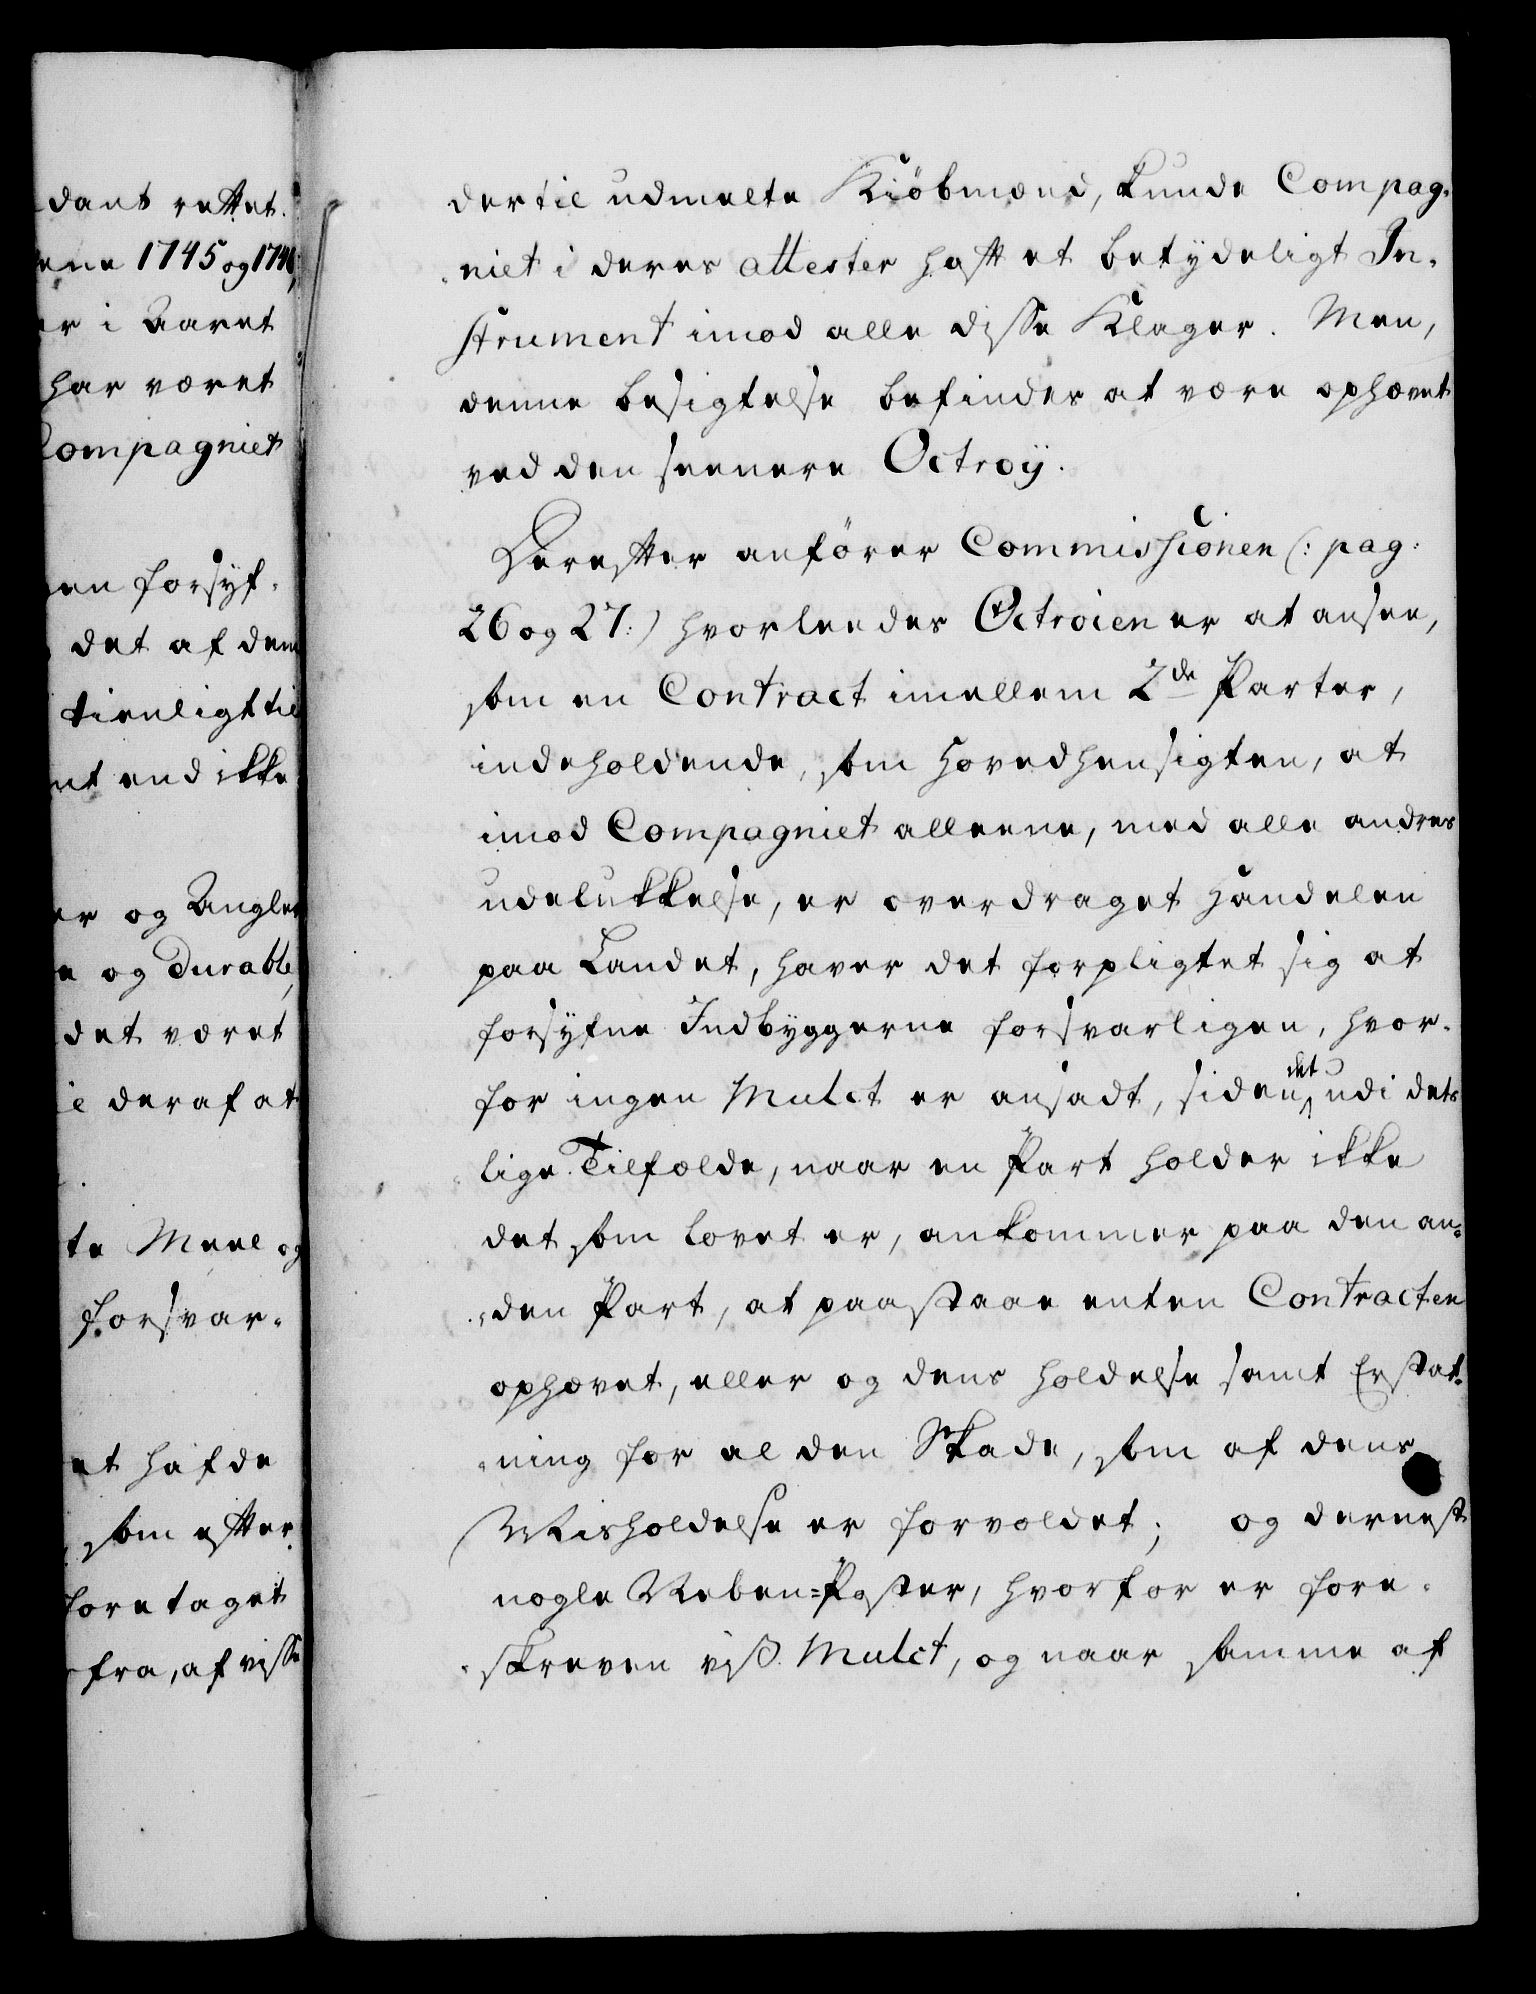 dant rettet.
ene 1745 og 1746,
er i Aaret
har været
Compagniet
en forsyf-
det af dem
tienligt til
nt end ikke
er og Angler
e og durable,
det været
il deraf at
te Meel og
forsvar-
et hafde
som efter
foretaget
fra, af visse
dertil udmelte Kiöbmænd, kunde Compag-
niet i deres attester haft et betydeligt In-
strument imod alle disse Klager. Men,
denne besigtelse befindes at være ophævet
ved den seenere Octroÿ.
Derefter anförer Commissionen (: pag:
26 og 27:) hvorleedes Octroien er at ansee,
som en Contract imellem 2de Parter,
indeholdende, som Hovedhensigten, at
imod Compagniet alleene, med alle andres
udelukkelse, er overdraget Handelen
paa Landet, haver det forpligtet sig at
forsyfne Indbyggerne forsvarligen, hvor-
for ingen Mulct er ansadt, siden det udi des
lige Tilfælde, naar en Part holder ikke
det som lovet er, ankommer paa den an-
den Part, at paastaae enten Contracten
ophævet, eller og dens holdelse samt Erstat-
ning for al den Skade, som af dens
Misholdelse er forvoldet; og dernest
nogle Neben=Poster, hvorfor er fore-
skreven viß Mulct, og naar samme af